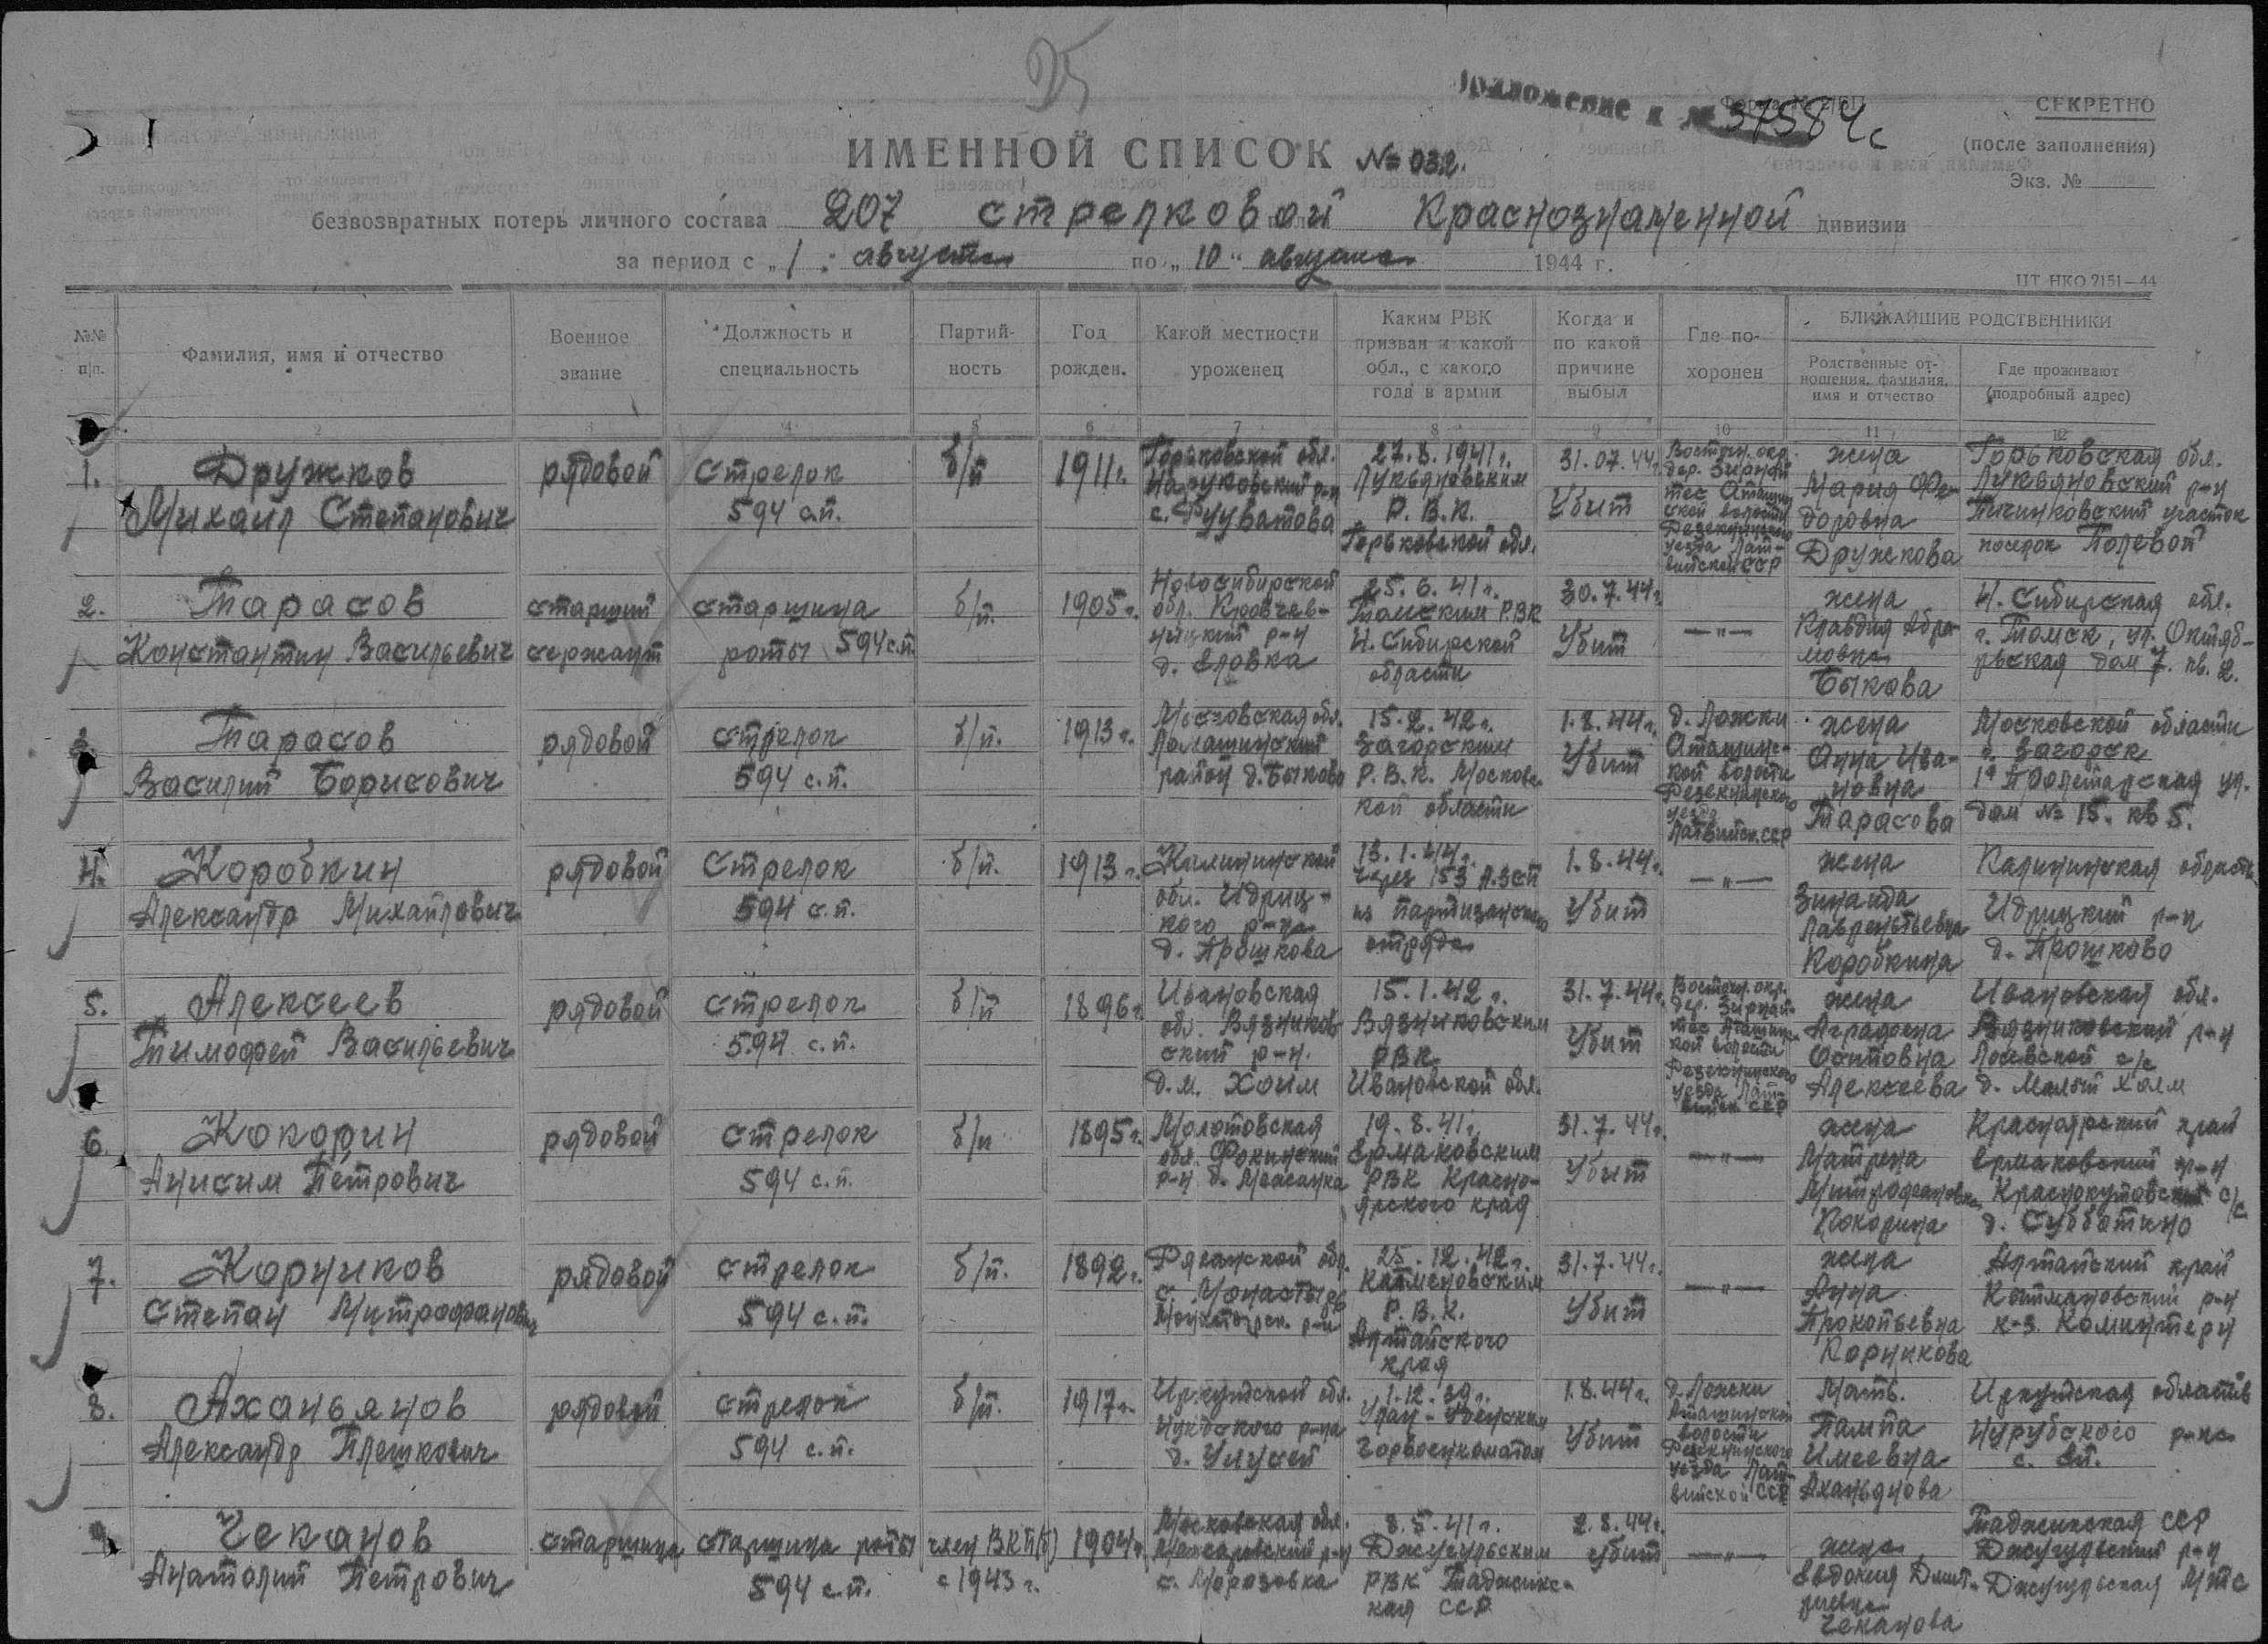 25
Приложение к № 37584с
СЕКРЕТНО
(после заполнения)
Экз. №
1
ИМЕННОЙ СПИСОК № 032.
безвозвратных потерь личного состава 207 стрелковой Краснознаменной дивизии
за период с „1" августа по „10" августа 1944 г.
ЦТ НКО 2151—44
№№ п/п.
Фамилия, имя и отчество
Военное звание
Должность и специальность
Партий-
ность
Год рожден.
Какой местности уроженец
Каким РВК призван и какой обл., с какого года в армии
Когда и по какой причине выбыл
Где по-
хоронен
БЛИЖАЙШИЕ РОДСТВЕННИКИ
Родственные от-
ношения, фамилия, имя и отчество
Где проживают (подробный адрес)
2 3 4 5 6 7 8 9 10 11 12
1.
Дружков
Михаил Степанович
рядовой
стрелок
594 с.п.
б/п
1911г.
Горьковской обл.
р-н
с.
27.8.1941г.
Лукьяновским
Р.В.К.
Горьковской обл.
31.07.44г.
Убит
Восточн. окр.
дер.
волости
уезда Лат-
вийской ССР
жена
Мария Фе-
доровна
Дружкова
Горьковская обл.
Лукьяновский р-н
участок
поселок Полевой
2.
Тарасов
Константин Васильевич
старший
сержант
старшина
роты 594 с.п.
б/п.
1905г.
Новосибирской
обл.
р-н
д. Еловка
25.6.41г.
Томским РВК
Н. Сибирской
области
30.7.44г.
Убит
—"—
жена
Клавдия Абра-
мовна
Быкова
Н. Сибирская обл.
г. Томск, ул. Октяб-
рьская дом 7. кв. 2.
3.
Тарасов
Василий Борисович
рядовой
стрелок
594 с.п.
б/п.
1913г.
Московская обл.
район д. Быково
15.2.42г.
Загорским
Р.В.К. Московс-
кой области
1.8.44г.
Убит
д. Ложки
Аташинс-
кой волости
уезда
Латвийск. ССР
жена
Анна Ива-
новна
Тарасова
Московской области
г. Загорск
1я Пролетарская ул.
дом № 15. кв 5.
4.
Коробкин
Александр Михайлович
рядовой
стрелок
594 с.п.
б/п.
1913г.
Калининской
обл. Идриц-
кого р-на
д. Прошкова
13.1.44г.
через 153 А.ЗСП
из партизанского
отряда
1.8.44г.
Убит
—"—
жена
Зинаида
Лаврентьевна
Коробкина
Калининская область
Идрицкий р-н
д. Прошково
5.
Алексеев
Тимофей Васильевич
рядовой
стрелок
594 с.п.
б/п
1896г.
Ивановская
обл. Вязников-
ский р-н.
д. М. Холм
15.1.42г.
Вязниковским
РВК
Ивановской обл.
31.7.44г.
Убит
Восточн. окр.
дер.
кой волости
уезда Лат-
вийск. ССР
жена
Аграфена
Осиповна
Алексеева
Ивановская обл.
Вязниковский р-н
с/с
д. Малый Холм
6.
Кокорин
Анисим Петрович
рядовой
стрелок
594 с.п.
б/п
1895г.
Молотовская
обл. Фокинский
р-н д.
19.8.41г.
Ермаковским
РВК Красно-
ярского края
31.7.44г.
Убит
—"—
жена
Матрена
Митрофановна
Кокорина
Красноярский край
Ермаковский р-н
с/с
д. Субботино
7.
Корников
Степан Митрофанович
рядовой
стрелок
594 с.п.
б/п.
1892г.
Рязанской обл.
с. Монастырь
р-н
25.12.42г.
Р.В.К.
Алтайского
края
31.7.44г.
Убит
—"—
жена
Анна
Прокопьевна
Корникова
Алтайский край
р-н
к-з. Коминтерн
8.
Аханьянов
Александр Плешкович
рядовой
стрелок
594 с.п.
б/п.
1917г.
Иркутской обл.
р-на
д.
1.12.39г.
Улан-Удэнским
Горвоенкоматом
1.8.44г.
Убит
д. Ложки
Аташинской
волости
уезда Лат-
вийской ССР
мать.
Пампа
Имеевна
Аханьянова
Иркутская область
р-на
9.
Чеканов
Анатолий Петрович
старшина
старшина роты
594 с.п.
член ВКП(б)
с 1943г.
1904г.
Московская обл.
р-н
с. Морозовка
8.5.41г.
РВК Таджикс-
кая ССР
2.8.44г.
убит
—"—
жена
Евдокия Дмит-
риевна
Чеканова
Таджикская ССР
р-н
МТС